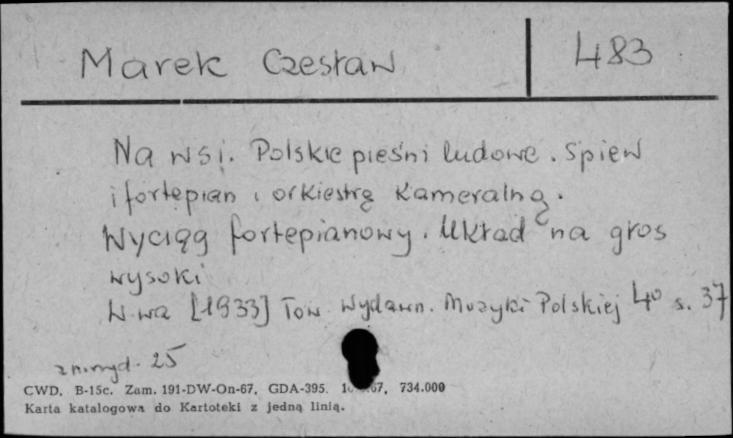 Marek Czesław 483
Na wsi. Polskie pieśni ludowe. Śpiew
i fortepian i orkiestrę Kameralną.
Wyciąg fortepianowy. Układ na głos
wysoki
W-wa [1933] Tow. Wydawn. Muzyki Polskiej 4° s. 37
zn. wyd. 25
CWD. B-15c. Zam. 191-DW-On-67. GDA-395. 67, 734.000
Karta katalogowa do Kartoteki z jedną linią.